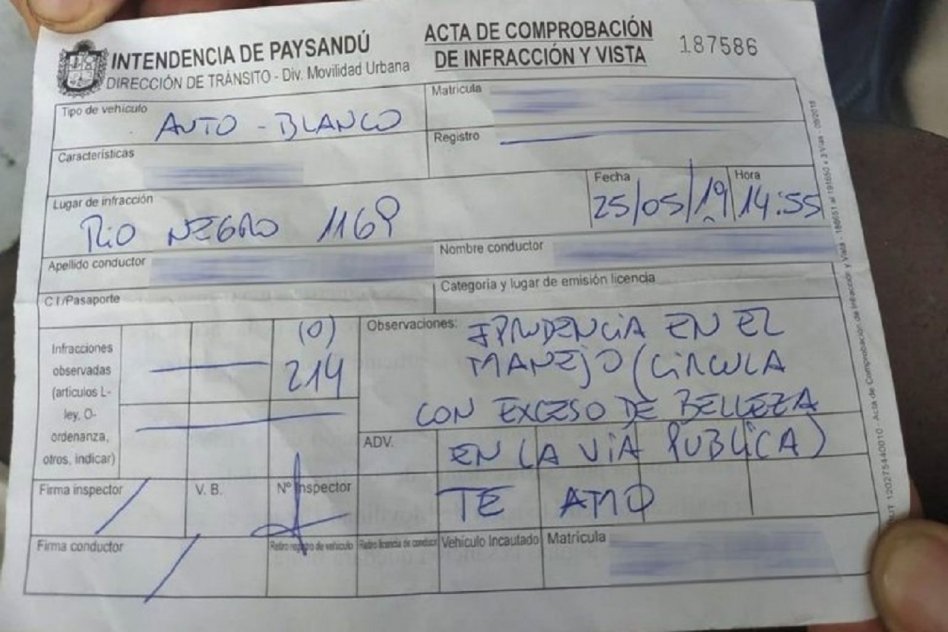 INTENDENCIA DE PAYSANDÚ
DIRECCIÓN DE TRÁNSITO - Div. Movilidad Urbana
ACTA DE COMPROBACIÓN
DE INFRACCIÓN Y VISTA
187586
Tipo de vehículo
AUTO - BLANCO
Matrícula
Características
Registro
Lugar de infracción
RIO NEGRO 1169
Fecha
25/05/19
Hora
14:55
Apellido conductor
Nombre conductor
C I/Pasaporte
Categoría y lugar de emisión licencia
Infracciones
observadas
(artículos L-
ley, O-
ordenanza,
otros, indicar)
(O)
214
Observaciones:
IPRUDENCIA EN EL
MANEJO (CIRCULA
CON EXCESO DE BELLEZA
EN LA VIA PUBLICA)
TE AMO
ADV.
Firma inspector
V. B.
Nº Inspector
Firma conductor
Retiro registro de vehículo
Retiro licencia de conducir
Vehículo Incautado
Matrícula